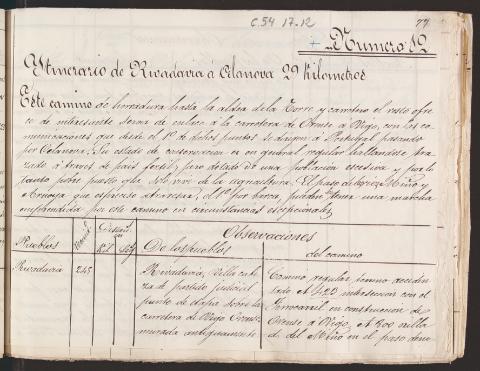 C.54 17.12
77
Numero 12
Ytinerario de Rivadavia á Celanova 29 Kilometros
Este camino de herradura hasta la aldea de la Torre, y carretero el resto ofre-
ce de interesante servir de enlace á la carretera de Orense á Vigo, con las co-
municaciones que desde el 1º de dichos puntos se dirigen á Portugal pasando
por Celanova. Su estado de conservacion es en general regular hallandose tra-
zado á traves de pais fertil, pero dotado de una poblacion escesiva y por lo
tanto pobre puesto que solo vive de la agricultura. El paso de los rios Miño y
Arnoya que es preciso atravesar, el 1º por barca, pueden hacer una marcha
emprendida por este camino en circunstancias escepcionales
Pueblos
Observaciones
De los pueblos
del camino
Rivadavia
245
Rivadavia, Villa cabe-
za de partido judicial
punto de etapa sobre la
carretera de Vigo Orense
murada antiguamente
Camino regular, terreno acciden-
tado A 423 interseccion con el
Ferrocarril en construccion de
Orense á Vigo, A 500 orilla
d. del Miño en el paso deno-